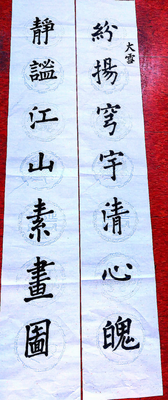 大雪
紛揚穹宇清心魄
靜謐江山素畫圖